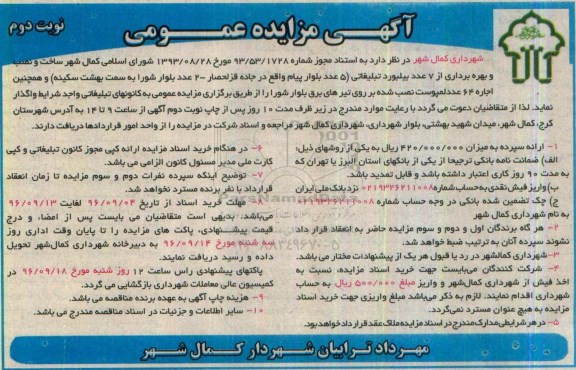 آگهی مزایده عمومی
نوبت دوم
شهرداری کمال شهر در نظر دارد به استناد مجوز شماره ۹۳/۵۳/۱۷۲۸ مورخ ۱۳۹۳/۰۸/۲۸ شورای اسلامی کمال شهر ساخت و نصب
و بهره برداری از ۷ عدد بیلبورد تبلیغاتی (۵ عدد بلوار پیام واقع در جاده قزلحصار -۲ عدد بلوار شورا به سمت بهشت سکینه) و همچنین
اجاره ۶۴ عدد لمپوست نصب شده بر روی تیر های برق بلوار شورا را از طریق برگزاری مزایده عمومی به کانونهای تبلیغاتی واجد شرایط واگذار
نماید. لذا از متقاضیان دعوت می گردد با رعایت موارد مندرج در زیر ظرف مدت ۱۰ روز پس از چاپ نوبت دوم آگهی از ساعت ۹ تا ۱۴ به آدرس شهرستان
کرج، کمال شهر، میدان شهید بهشتی، بلوار شهرداری، شهرداری کمال شهر مراجعه و اسناد شرکت در مزایده را از واحد امور قراردادها دریافت دارند.
۱- ارائه سپرده به میزان ۴۲۰/۰۰۰/۰۰۰ ریال به یکی از روشهای ذیل:
الف) ضمانت نامه بانکی ترجیحا از یکی از بانکهای استان البرز یا تهران که
به مدت ۹۰ روز کاری اعتبار داشته باشد و قابل تمدید باشد.
ب) واریز فیش نقدی به حساب شماره ۰۲۱۹۳۲۶۲۱۱۰۰۸ نزد بانک ملی ایران
ج) چک تضمین شده بانکی در وجه حساب شماره
به نام شهرداری کمال شهر
۲- هر گاه برندگان اول و دوم و سوم مزایده حاضر به انعقاد قرار داد
نشوند سپرده آنان به ترتیب ضبط خواهد شد.
۳- شهرداری کمالشهر در رد یا قبول هر یک از پیشنهادات مختار می باشد.
۴- شرکت کنندگان می‌بایست جهت خرید اسناد مزایده، نسبت به
اخذ فیش از شهرداری کمال‌شهر و واریز مبلغ ۵۰۰/۰۰۰ ریال به حساب
شهرداری اقدام نمایند. لازم به ذکر می‌باشد مبلغ واریزی جهت خرید اسناد
مزایده به هیچ عنوان مسترد نمی‌گردد.
۵- در هر شرایطی مدارک مندرج در اسناد مزایده ملاک عقد قرارداد خواهد بود.
۶- در هنگام خرید اسناد مزایده ارائه کپی مجوز کانون تبلیغاتی و کپی
کارت ملی مدیر مسئول کانون الزامی می باشد.
۷- توضیح اینکه سپرده نفرات دوم و سوم مزایده تا زمان انعقاد
قرارداد با نفر برنده مسترد نخواهد شد.
۸- مهلت خرید اسناد از تاریخ ۹۶/۰۹/۰۴ لغایت ۹۶/۰۹/۱۳
می‌باشد. بدیهی است متقاضیان می بایست پس از امضاء و درج
قیمت پیشنهادی، پاکت های مزایده را تا پایان وقت اداری روز
سه شنبه مورخ ۹۶/۰۹/۱۴ به دبیرخانه شهرداری کمال‌شهر تحویل
داده و رسید دریافت نمایند.
پاکتهای پیشنهادی راس ساعت ۱۲ روز شنبه مورخ ۹۶/۰۹/۱۸ در
کمیسیون عالی معاملات شهرداری بازگشایی می گردد.
۹- هزینه چاپ آگهی به عهده برنده مناقصه می باشد.
۱۰- سایر اطلاعات و جزئیات در اسناد مناقصه مندرج می باشد.
مهرداد ترابیان شهردار کمال شهر